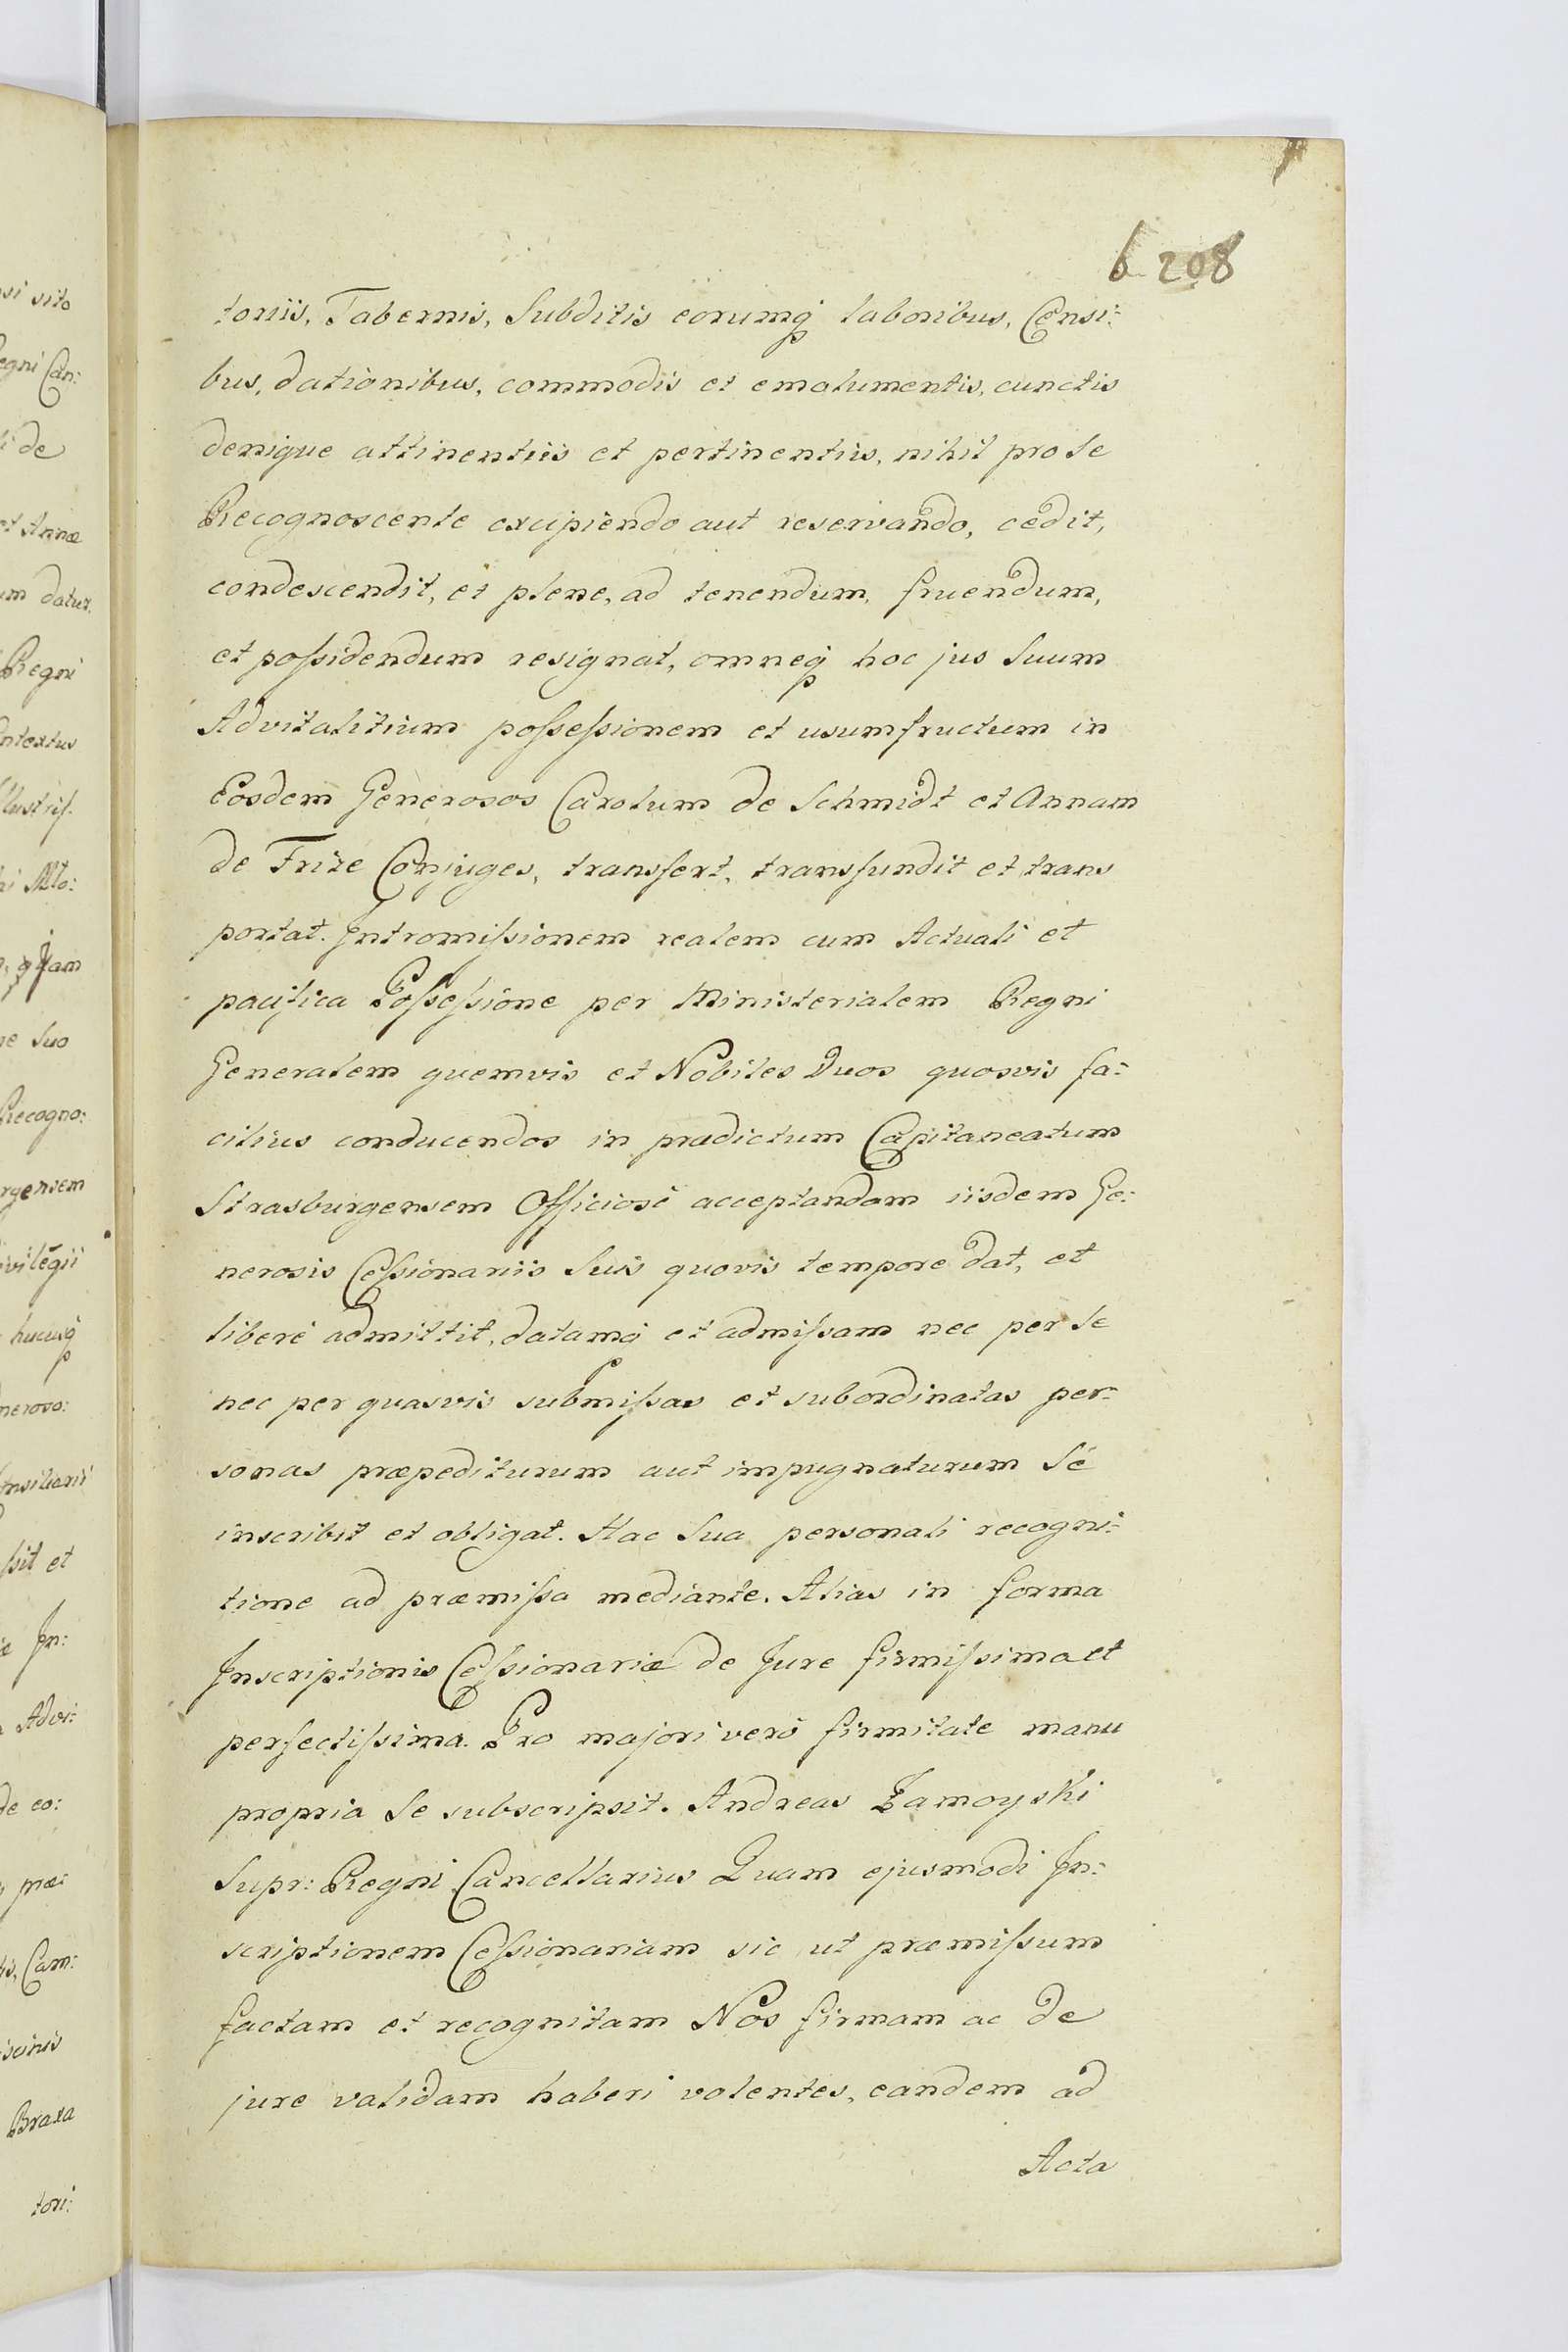 6 208
toriis, Tabernis, Subditis eorumq laboribus, Censi:
bus, dationibus, commodis et emolumentis, cunctis
denique attinentiis et pertinentiis, nihil pro Se
Recognoscente excipiendo aut reservando, cedit,
condescendit, et plene, ad tenendum, fruendum,
et poſsidendum resignat, omneq hoc jus Suum
Advitalitium poſseſsionem et usumfructum in
Eosdem Generosos Carolum de Schmidt et Annam
de Frize Conjuges, transfert, transfundit et trans
portat. Intromiſsionem realem cum Actuali et
pacifica Poſseſsione per Ministerialem Regni
Generalem quemvis et Nobiles Duos quosvis fa:
cilius conducendos in prædictum Capitaneatum
Strasburgensem Officiosè acceptandam iisdem Ge:
nerosis Ceſsionariis Suis quovis tempore dat, et
liberè admittit, datamq et admiſsam nec per Se
nec per quasvis submiſsas et subordinatas per:
sonas præpediturum aut impugnaturum Sé
inscribit et obligat. Hac Sua personali recogni:
tione ad præmiſsa mediante. Alias in forma
Inscriptionis Ceſsionariæ de Jure firmiſsima et
perfectiſsima. Pro majori verò firmitate manu
propria Se subscripsit. Andreas Zamoyski
Supr: Regni Cancellarius Quam ejusmodi In:
scriptionem Ceſsionariam sic ut præmiſsum
factam et recognitam Nos firmam ac de
jure validam haberi volentes, eandem ad
Acta